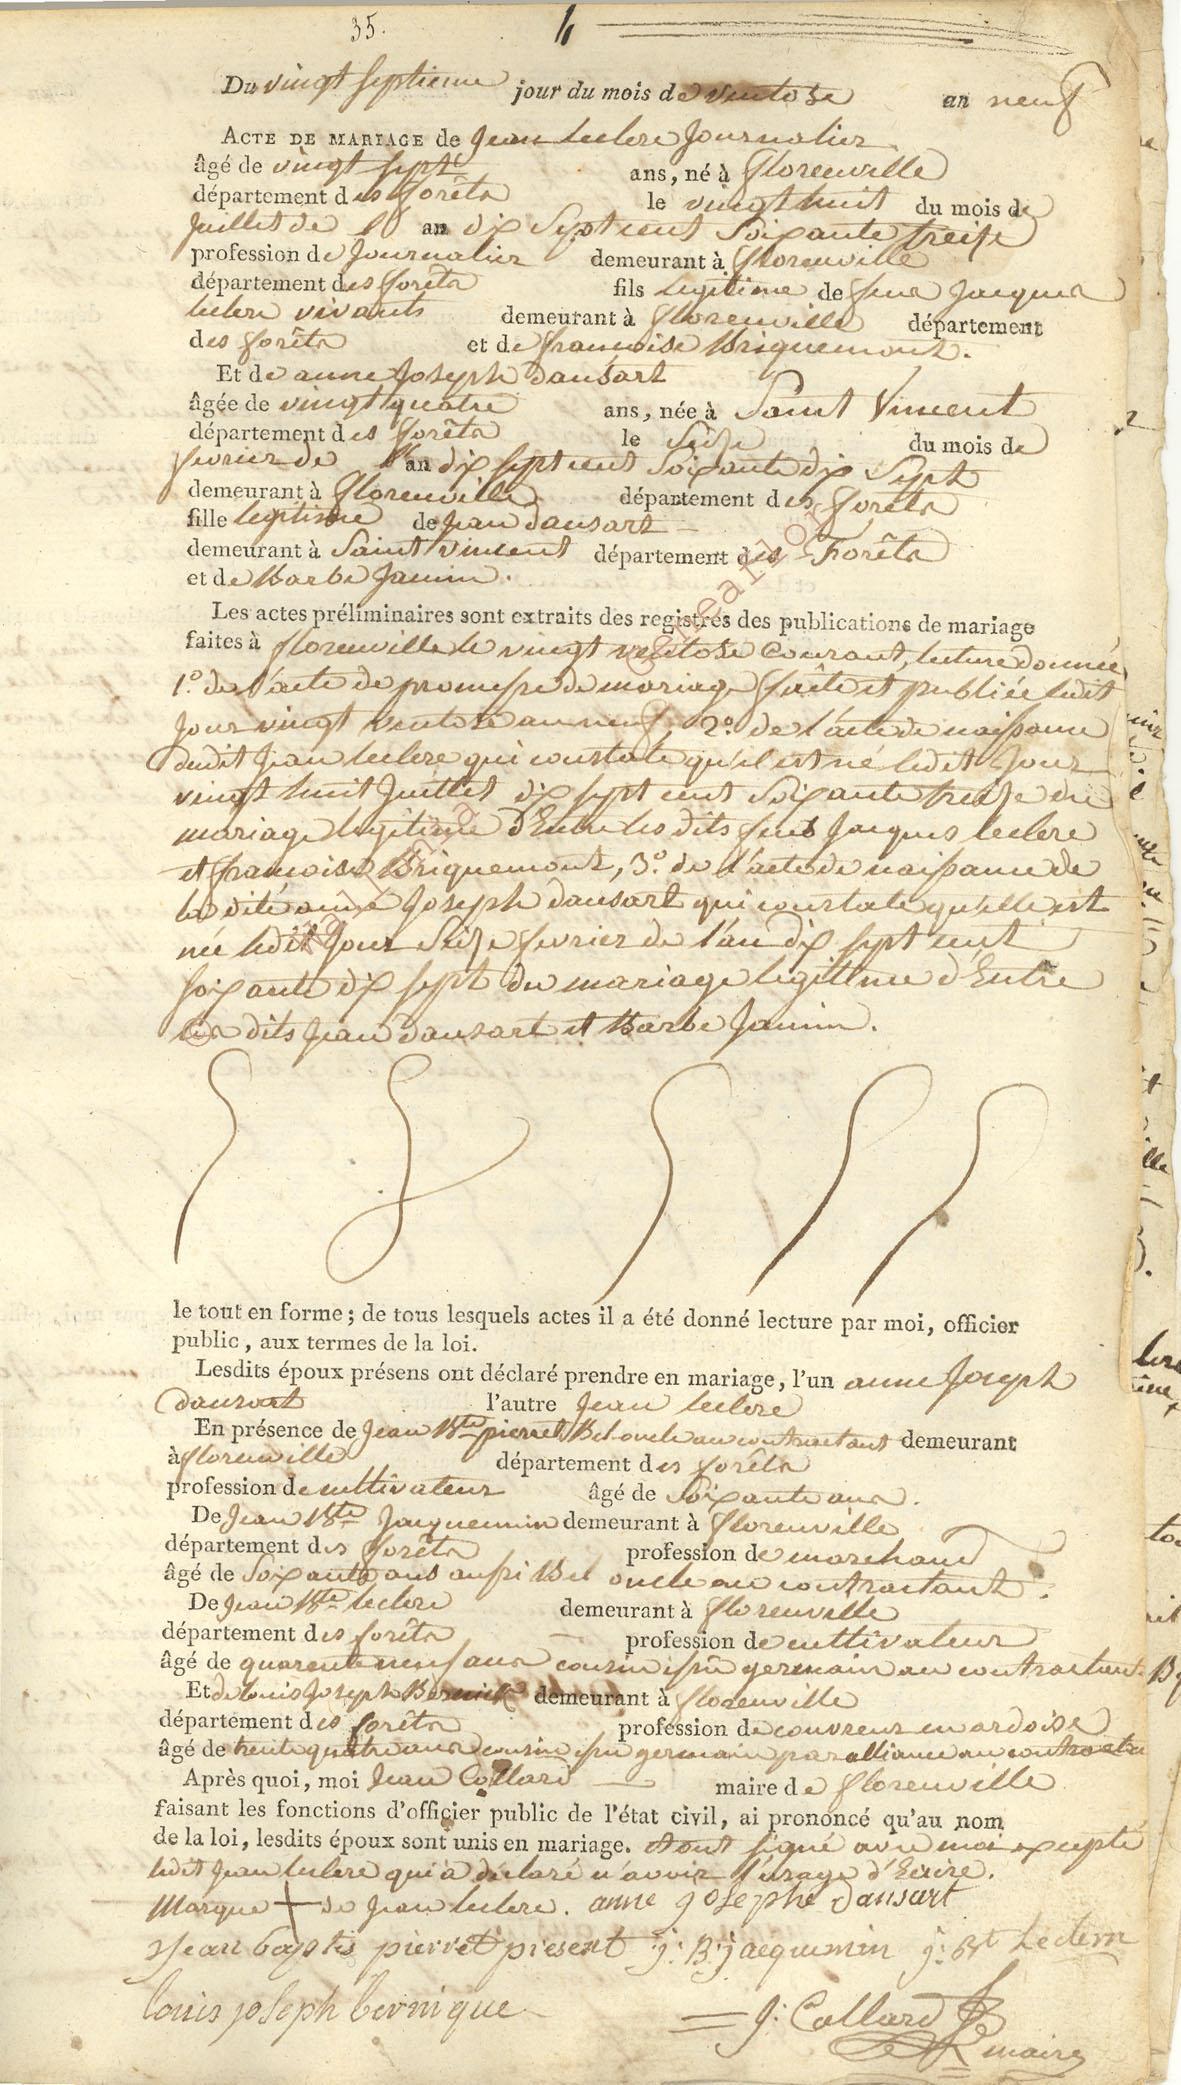 35. 4
Du vingt septieme jour du mois de ventose an neuf
ACTE DE MARIAGE de Jean leclere Journalier
âgé de vingt sept ans, né à florenville
département des forêts le vingt huit du mois de
Juillet de l' an dix Sept cent Soixante treise
profession de Journalier demeurant à florenville
département des forêts fils legitime de feux Jacques
leclere vivants demeurant à florenville département
des forêts et de francoise Briquemont.
Et de anne Joseph dansart
âgée de vingt quatre ans, née à Saint Vincent
département des forêts le Seize du mois de
fevrier de l' an dix sept cent Soixante dix Sept
demeurant à florenville département des forêts
fille legitime de Jean dansart
demeurant à Saint vincent département des Forêts
et de Barbe Jamin.
Les actes préliminaires sont extraits des registres des publications de mariage
faites à florenville le vingt ventose Courant, lecture donnée
1.º de l'acte de promesse de mariage faite et publiée ledit
Jour vingt ventose an neuf, 2.º de l'acte de naissance
dudit Jean leclere qui constate qu'il est né ledit Jour
vingt huit Juillet dix sept cent soixante treize du
mariage legitime d'Entre les dits feus Jacques leclere
et francoise Briquemont, 3.º de l'acte de naissance de
la dite anne Joseph dansart qui constate qu'elle est
née ledit Jour Seize fevrier de l'an dix sept cent
soixante dix sept du mariage legittime d'Entre
les dits Jean dansart et Barbe Jamin.
le tout en forme; de tous lesquels actes il a été donné lecture par moi, officier
public, aux termes de la loi.
Lesdits époux présens ont déclaré prendre en mariage, l'un anne Joseph
dansart l'autre Jean leclere
En présence de Jean Bte pierret Bel oncle au contractant demeurant
à florenville département des forêts
profession de cultivateur âgé de Soixante ans.
De Jean Bte Jacquemin demeurant à florenville
département des forêts profession de marchand
âgé de Soixante ans aussi Bel oncle au contractant.
De Jean Bte leclere demeurant à florenville
département des forêts profession de cultivateur
âgé de quarente neuf ans cousin issu germain au contractant
Et de louis Joseph demeurant à florenville
département des forêts profession de couvreur en ardoise
âgé de trente quatre ans cousin issu germain par alliance au
Après quoi, moi Jean Collard maire de florenville
faisant les fonctions d'officier public de l'état civil, ai prononcé qu'au nom
de la loi, lesdits époux sont unis en mariage. et ont signé avec moi excepté
ledit Jean leclere qui a déclaré n'avoir l'usage d'Ecrire.
Marque + de Jean leclere. anne josephe dansart
Jean baptis pierret present j: B: jacquemin j: Bt Leclern
louis joseph bernique
J: Collard
maire